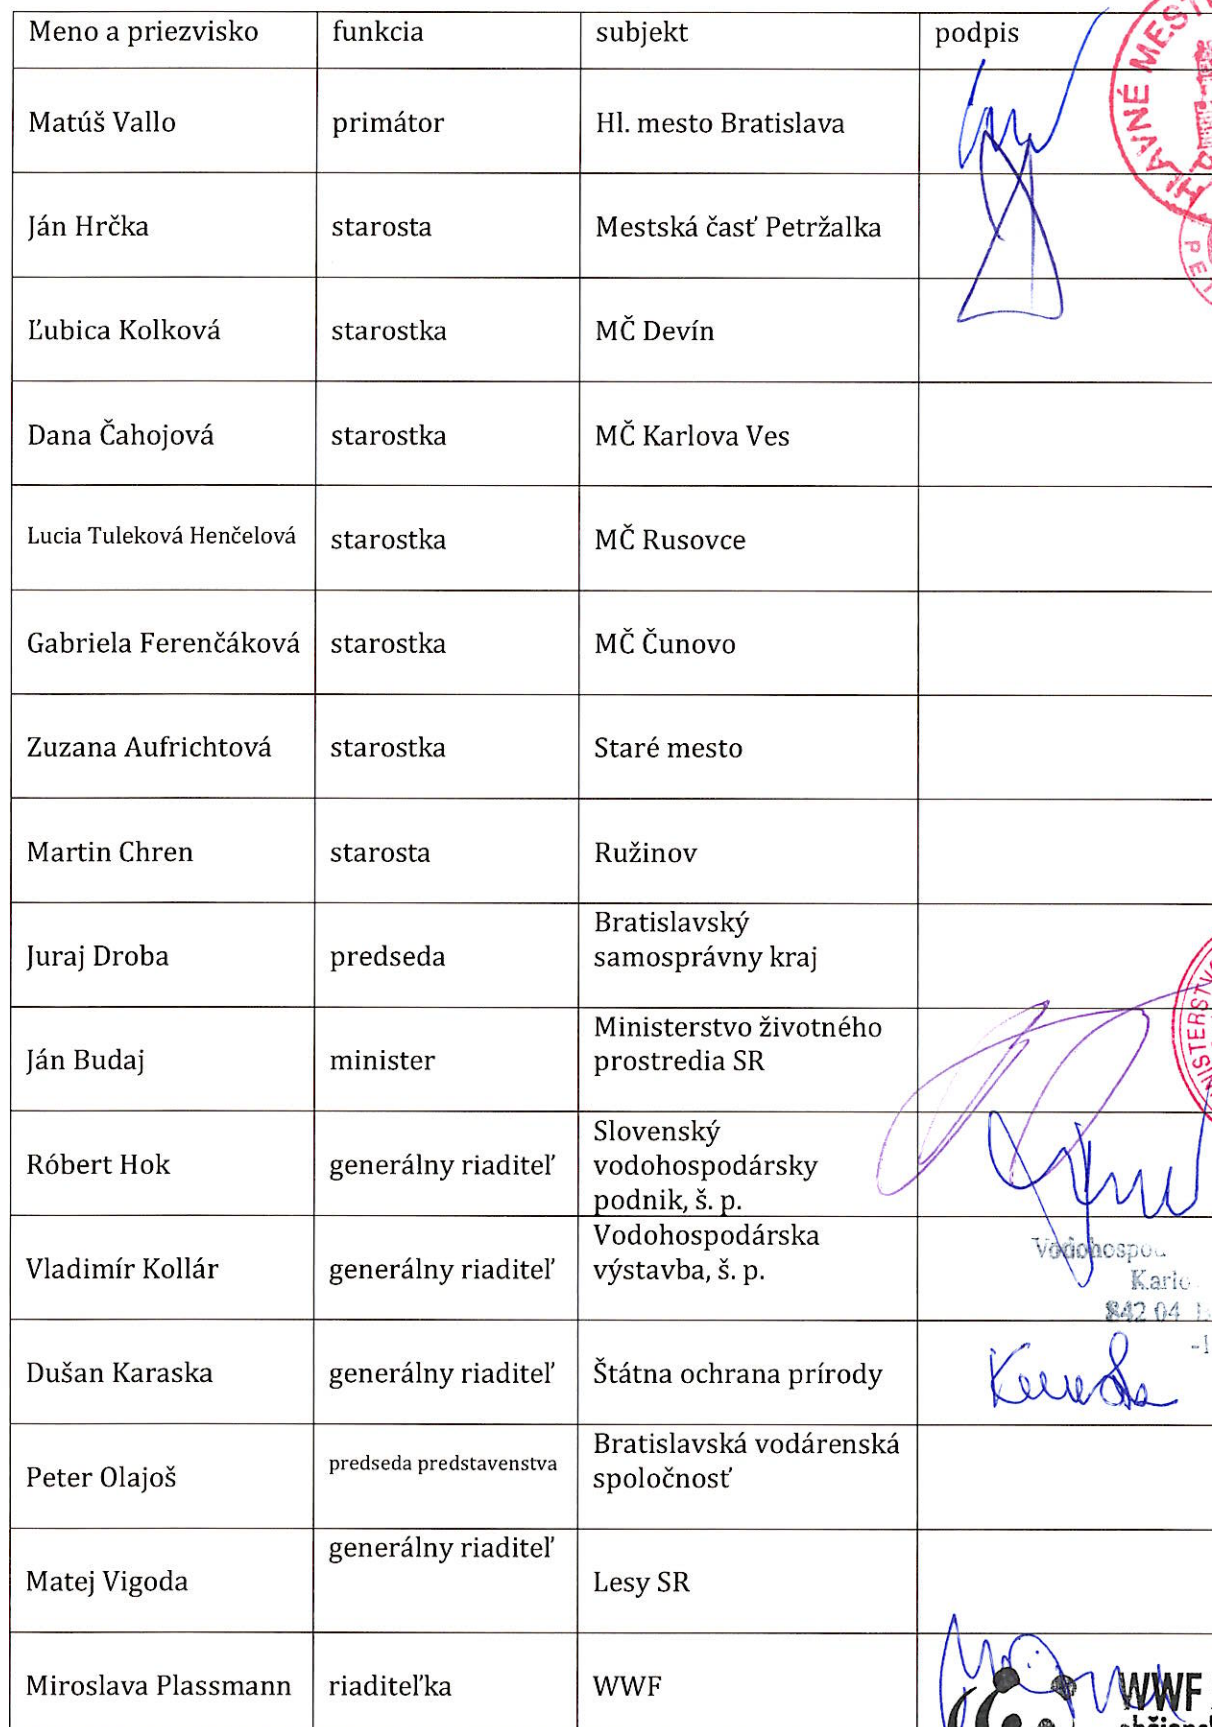 Meno a priezvisko funkcia subjekt podpis
Matúš Vallo primátor Hl. mesto Bratislava
HLAVNÉ MEST
Ján Hrčka starosta Mestská časť Petržalka
PE
Ľubica Kolková starostka MČ Devín
Dana Čahojová starostka MČ Karlova Ves
Lucia Tuleková Henčelová starostka MČ Rusovce
Gabriela Ferenčáková starostka MČ Čunovo
Zuzana Aufrichtová starostka Staré mesto
Martin Chren starosta Ružinov
Juraj Droba predseda Bratislavský
samosprávny kraj
Ján Budaj minister Ministerstvo životného
prostredia SR
NISTERSTV
Róbert Hok generálny riaditeľ Slovenský
vodohospodársky
podnik, š. p.
Vladimír Kollár generálny riaditeľ Vodohospodárska
výstavba, š. p.
Vodohospo
Karlo
842 04
-1
Dušan Karaska generálny riaditeľ Štátna ochrana prírody
Peter Olajoš predseda predstavenstva Bratislavská vodárenská
spoločnosť
Matej Vigoda generálny riaditeľ Lesy SR
Miroslava Plassmann riaditeľka WWF
WWF